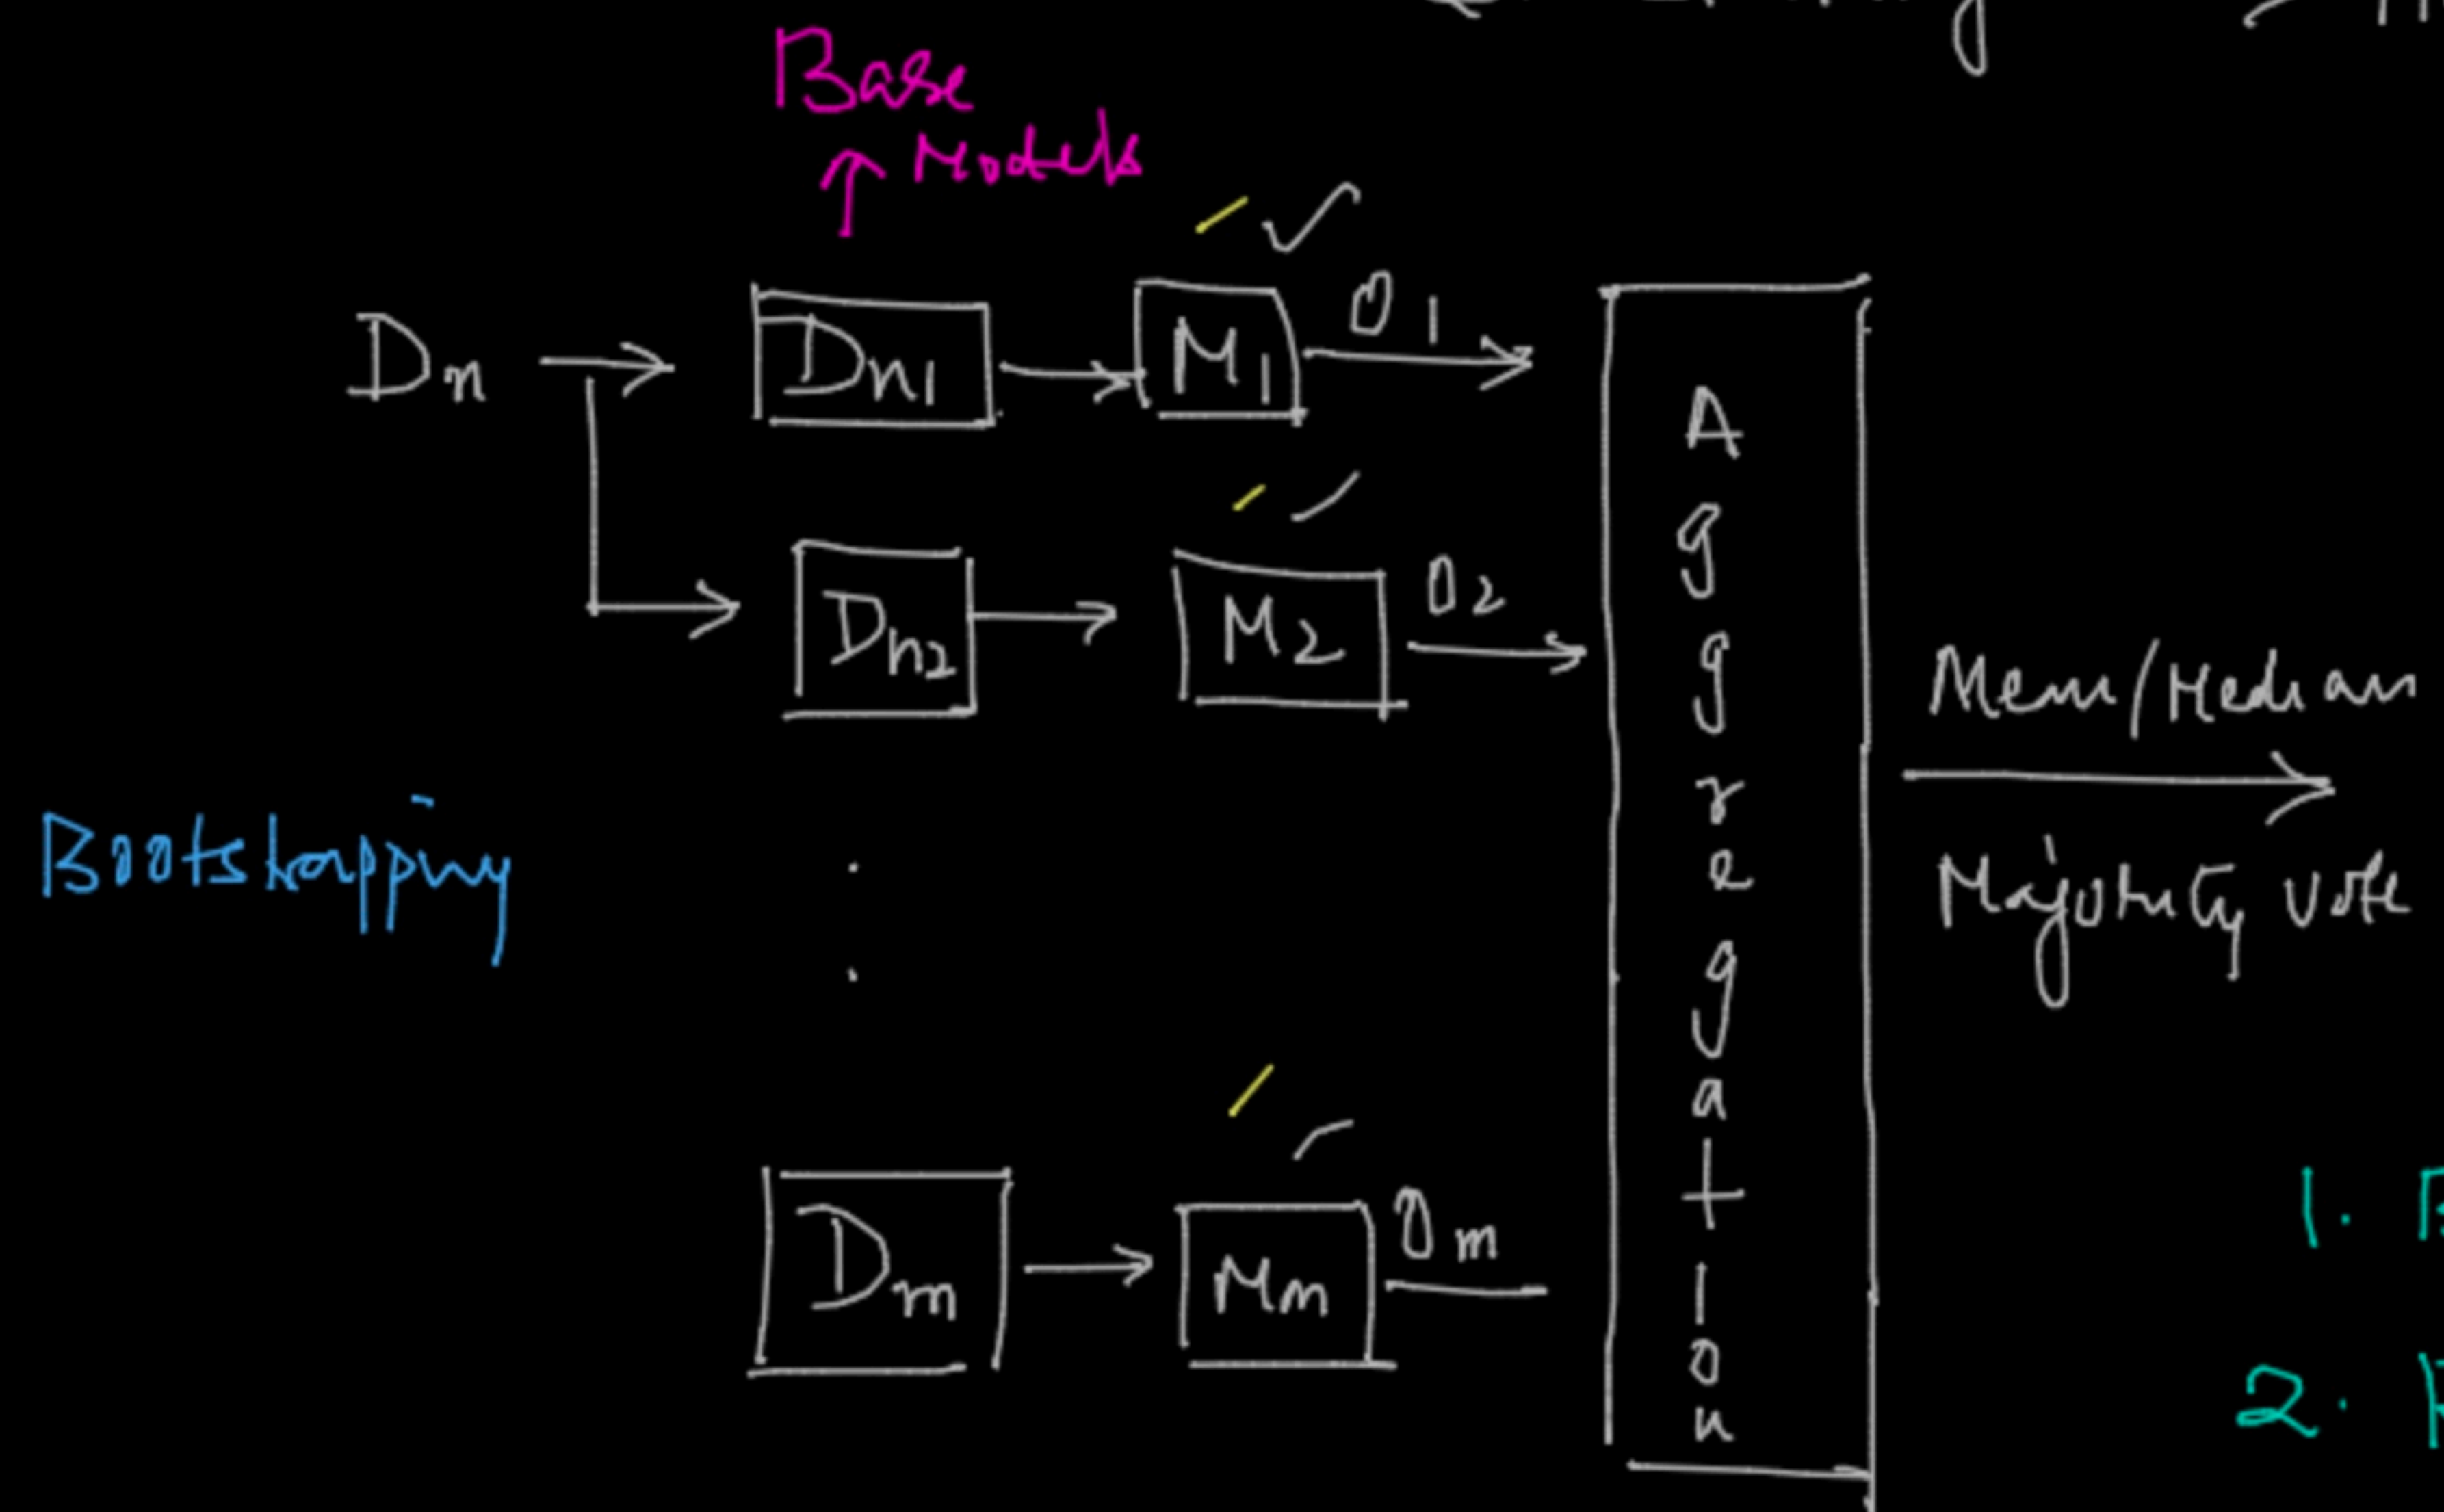 Base
Models
Dn
Dn1
M1
O1
Dn2
M2
O2
Bootstrapping
Dm
Mm
Om
Aggregation
Mean/Median
Majority vote
1.
2.